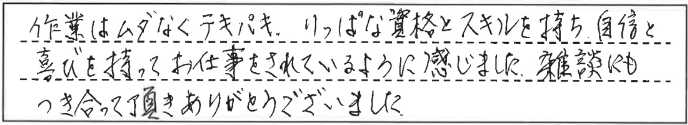 作業はムダなくテキパキ、りっぱな資格とスキルを持ち、自信と
喜びを持ってお仕事をされているように感じました。雑談にも
つき合って頂きありがとうございました。